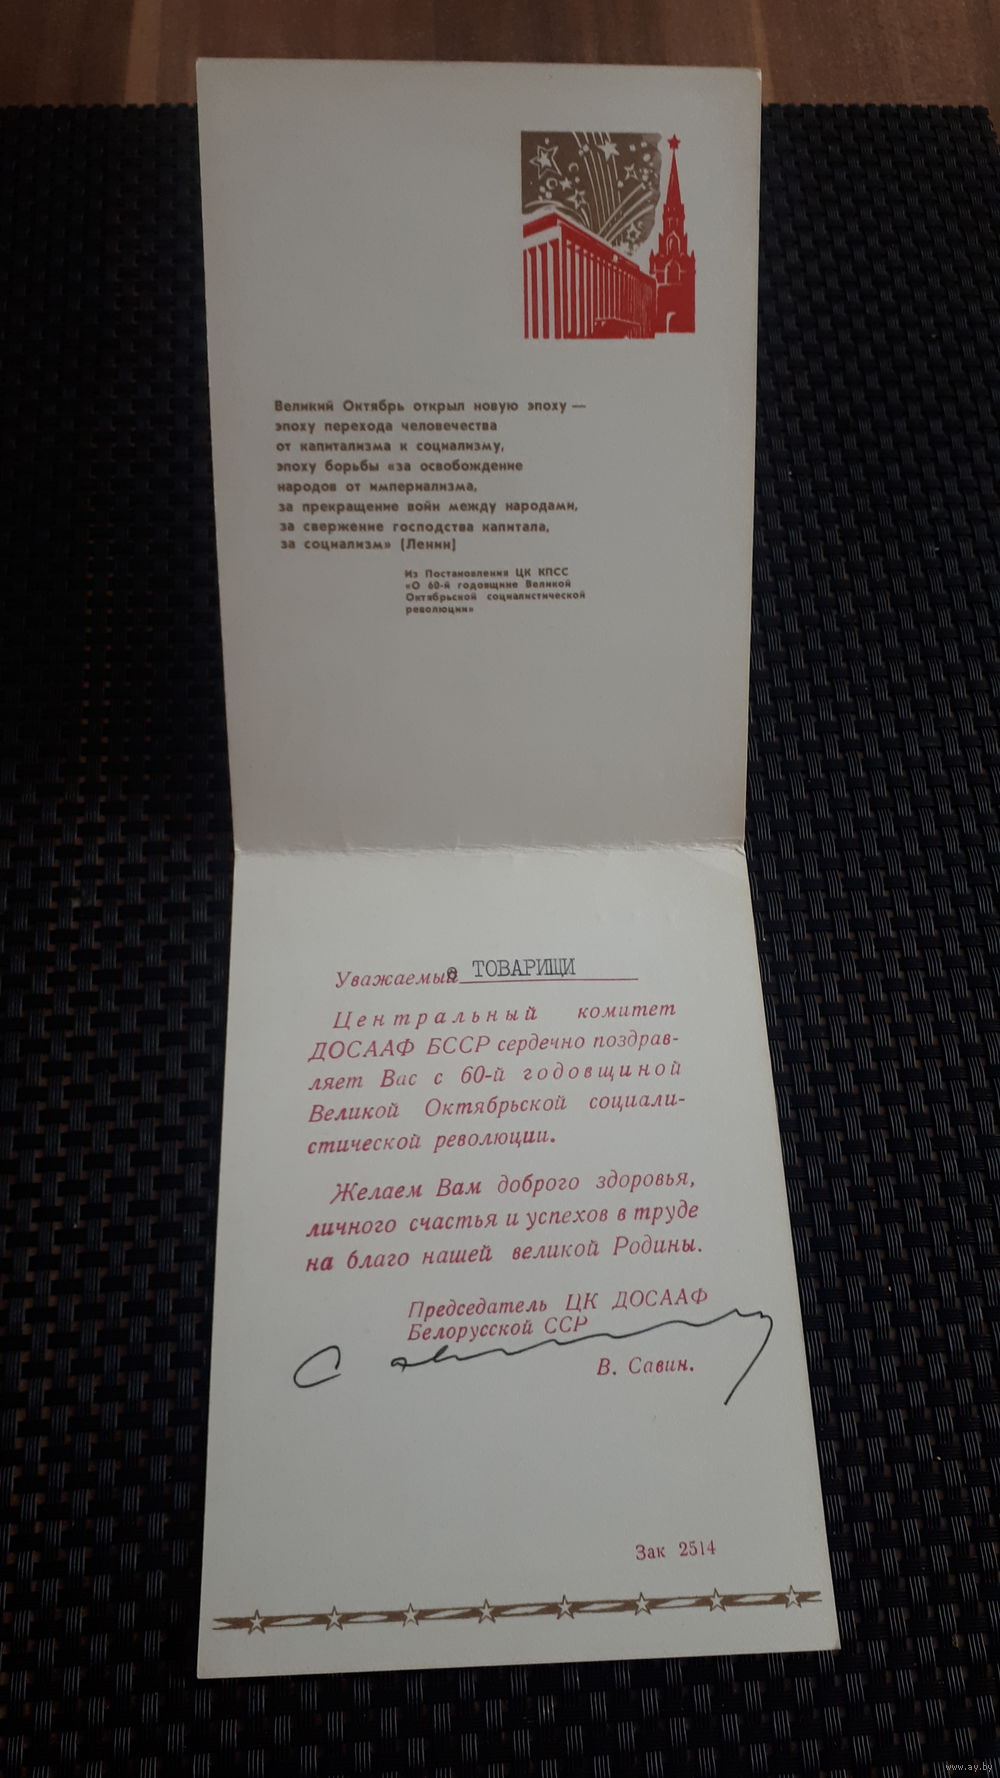 Великий Октябрь открыл новую эпоху —
эпоху перехода человечества
от капитализма к социализму,
эпоху борьбы «за освобождение
народов от империализма,
за прекращение войн между народами,
за свержение господства капитала,
за социализм» [Ленин]
Из Постановления ЦК КПСС
«О 60-й годовщине Великой
Октябрьской социалистической
революции»
Уважаемые ТОВАРИЩИ
Центральный комитет
ДОСААФ БССР сердечно поздрав-
ляет Вас с 60-й годовщиной
Великой Октябрьской социали-
стической революции.
Желаем Вам доброго здоровья,
личного счастья и успехов в труде
на благо нашей великой Родины.
Председатель ЦК ДОСААФ
Белорусской ССР
В. Савин.
Зак 2514
www.ay.by